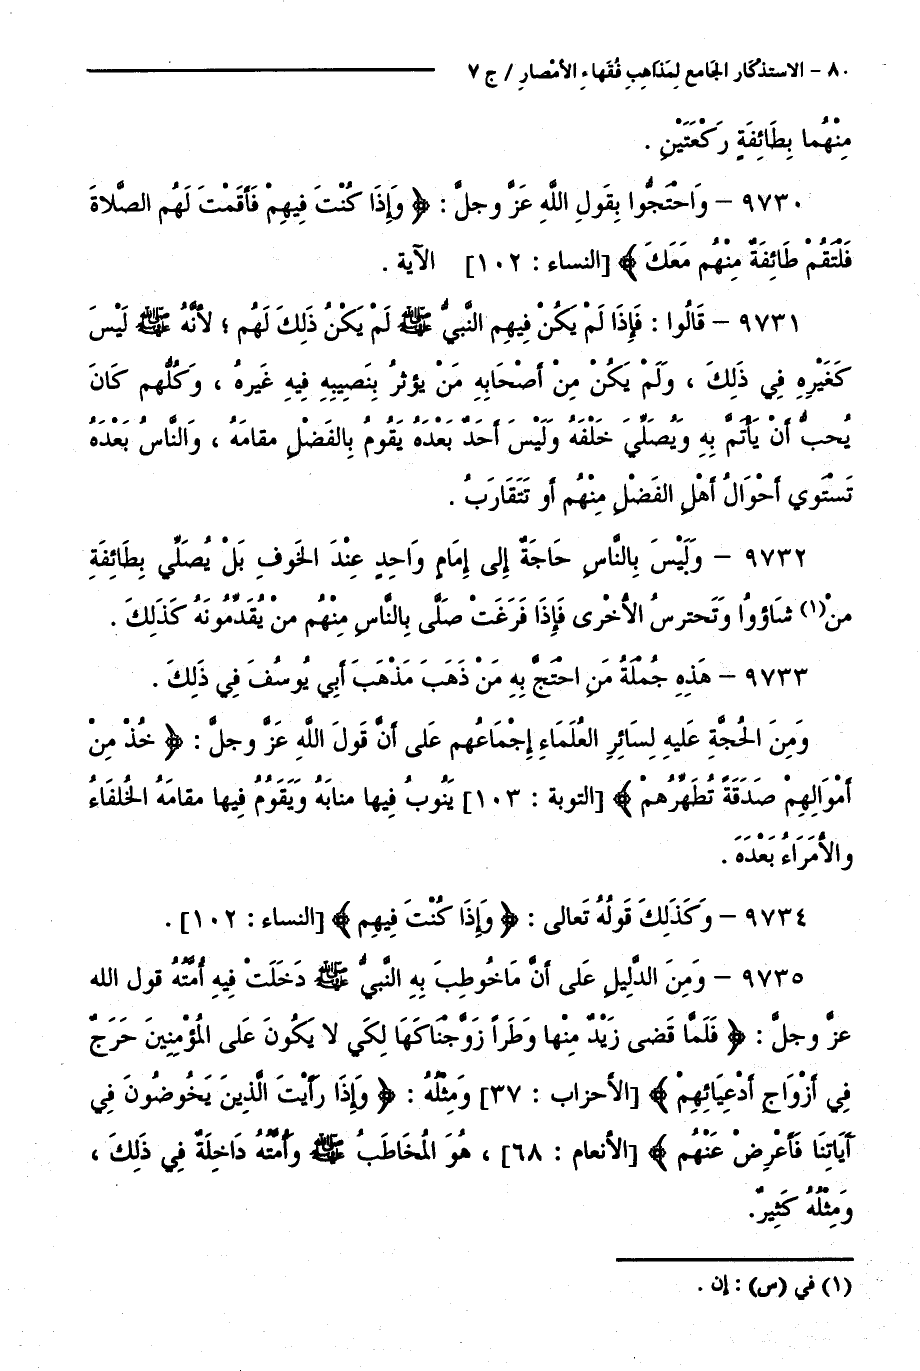 ٨٠ - الاستذكار الجامع لِمَذاهِبِ فُقَهاءِ الأمْصارِ / ج ٧
مِنْهُما بِطَائِفَةٍ رَكْعَتَيْنِ .
٩٧٣٠ - وَاحْتَجُّوا بِقَولِ اللَّهِ عَزَّ وجلَّ : ﴿ وَإِذَا كُنْتَ فِيهِمْ فَأَقَمْتَ لَهُم الصَّلاةَ
فَلْتَقُمْ طَائِفَةٌ مِنْهُم مَعَكَ ﴾ [النساء : ١٠٢] الآية .
٩٧٣١ - قَالُوا : فَإِذَا لَمْ يَكُنْ فِيهِم النَّبيُّ ﷺ لَمْ يَكُنْ ذَلِكَ لَهُم ؛ لأنَّهُ ﷺ لَيْسَ
كَغَيْرِهِ فِي ذَلِكَ ، ولَمْ يَكُنْ مِنْ أصْحَابِهِ مَنْ يؤثرُ بِنَصِيبِهِ فِيهِ غَيرهُ ، وَكُلُّهم كَانَ
يُحبُّ أنْ يَأتَمَّ بِهِ وَيُصَلِّيَ خَلْفَهُ وَلَيْسَ أحَدٌ بَعْدَهُ يَقُومُ بِالفَضْلِ مقامَهُ ، وَالنَّاسُ بَعْدَهُ
تَسْتَوي أحْوَالُ أهْلِ الفَضْلِ مِنْهُم أو تَتَقَارَبُ .
٩٧٣٢ - وَلَيْسَ بِالنَّاسِ حَاجَةٌ إِلى إِمَامٍ وَاحِدٍ عِنْدَ الخَوفِ بَلْ يُصَلِّي بِطَائِفَةٍ
منْ(١) شَاؤُوا وَتَحترسُ الأخْرى فَإِذَا فَرَغَتْ صلَّى بِالنَّاسِ مِنْهُم منْ يُقَدِّمُونَهُ كَذَلِكَ .
٩٧٣٣ - هَذِهِ جُمْلَةُ مَنِ احتَجَّ بِهِ مَنْ ذَهَبَ مَذْهَبَ أبي يُوسُفَ فِي ذَلِكَ .
وَمِنَ الحُجَّةِ عَلَيهِ لِسَائِرِ العُلَمَاءِ إِجْمَاعُهم عَلَى أنَّ قَولَ اللَّهِ عَزَّ وجلَّ : ﴿ خُذْ مِنْ
أمْوَالِهِمْ صَدَقَةً تُطَهِّرُهمْ ﴾ [التوبة : ١٠٣] يَنُوبُ فِيها منابَهُ وَيَقُومُ فِيها مقامَهُ الخُلفَاءُ
والأمَرَاءُ بَعْدَهَ .
٩٧٣٤ - وَكَذَلِكَ قَولُهُ تَعالى : ﴿ وَإِذَا كُنْتَ فِيهِم ﴾ [النساء : ١٠٢] .
٩٧٣٥ - وَمِنَ الدَّلِيلِ عَلَى أنَّ مَاخُوطِبَ بِهِ النَّبيُّ ﷺ دَخَلَتْ فِيهِ أُمَّتُهُ قول الله
عزَّ وجلَّ : ﴿ فَلَمَّا قَضى زَيْدٌ مِنْها وَطَراً زَوَّجْنَاكَهَا لِكَي لا يَكُونَ عَلَى المُؤْمِنِينَ حَرَجٌ
فِي أزْوَاجِ أدْعِيَائِهِمْ ﴾ [الأحزاب : ٣٧] وَمِثْلُهُ : ﴿ وَإِذَا رَأَيْتَ الَّذِينَ يَخُوضُونَ فِي
آيَاتِنَا فَأَعْرِضْ عَنْهُم ﴾ [الأنعام : ٦٨] ، هُوَ المُخَاطَبُ ﷺ وأُمَّتُهُ دَاخِلَةٌ فِي ذَلِكَ ،
وَمِثْلُهُ كَثِيرٌ.
(١) في (س) : إن .